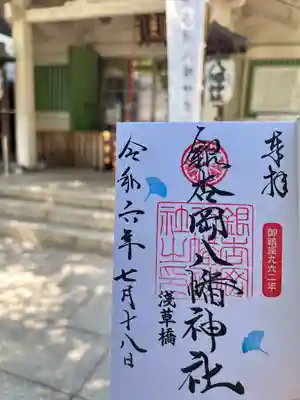 奉拝
御鎮座九六二年
銀杏岡八幡神社
浅草橋
令和六年七月十八日